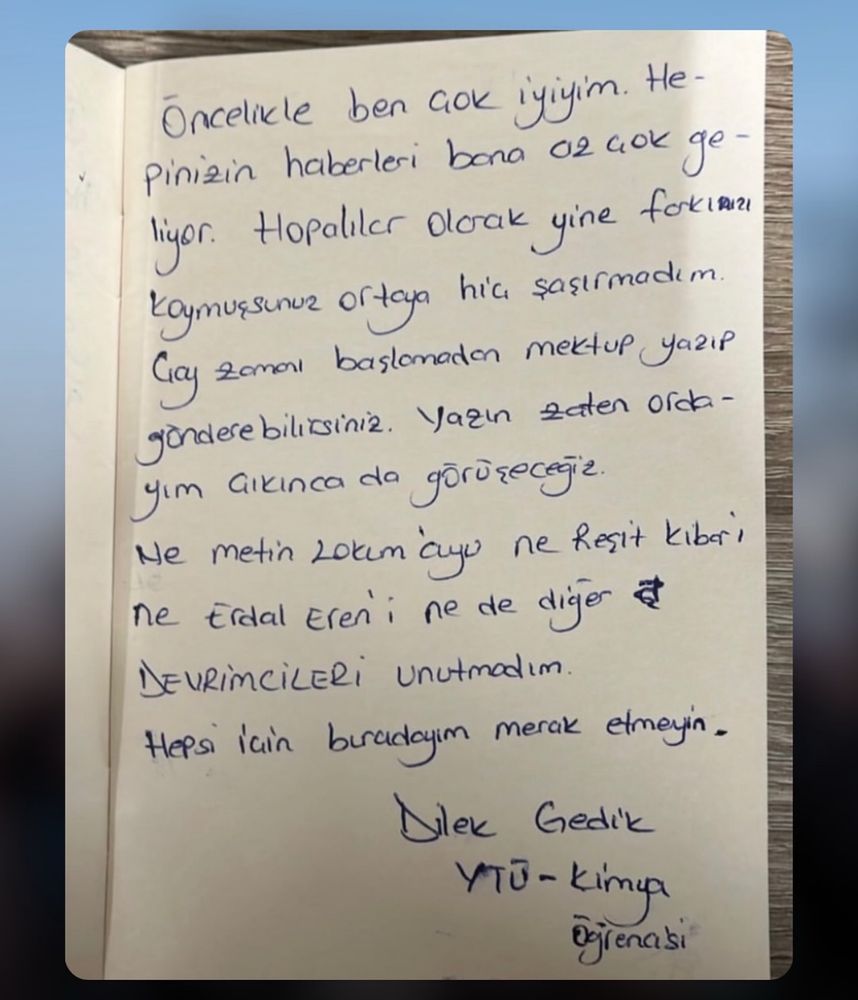 Öncelikle ben çok iyiyim. He-
pinizin haberleri bana az çok ge-
liyor. Hopalılar olarak yine farkınızı
koymuşsunuz ortaya hiç şaşırmadım.
Çay zamanı başlamadan mektup yazıp
gönderebilirsiniz. Yazın zaten orda-
yım çıkınca da görüşeceğiz.
Ne metin Lokum'cuyu ne Reşit Kibar'ı
ne Erdal Eren'i ne de diğer
DEVRİMCİLERİ unutmadım.
Hepsi için buradayım merak etmeyin.
Dilek Gedik
YTÜ - Kimya
Öğrencisi